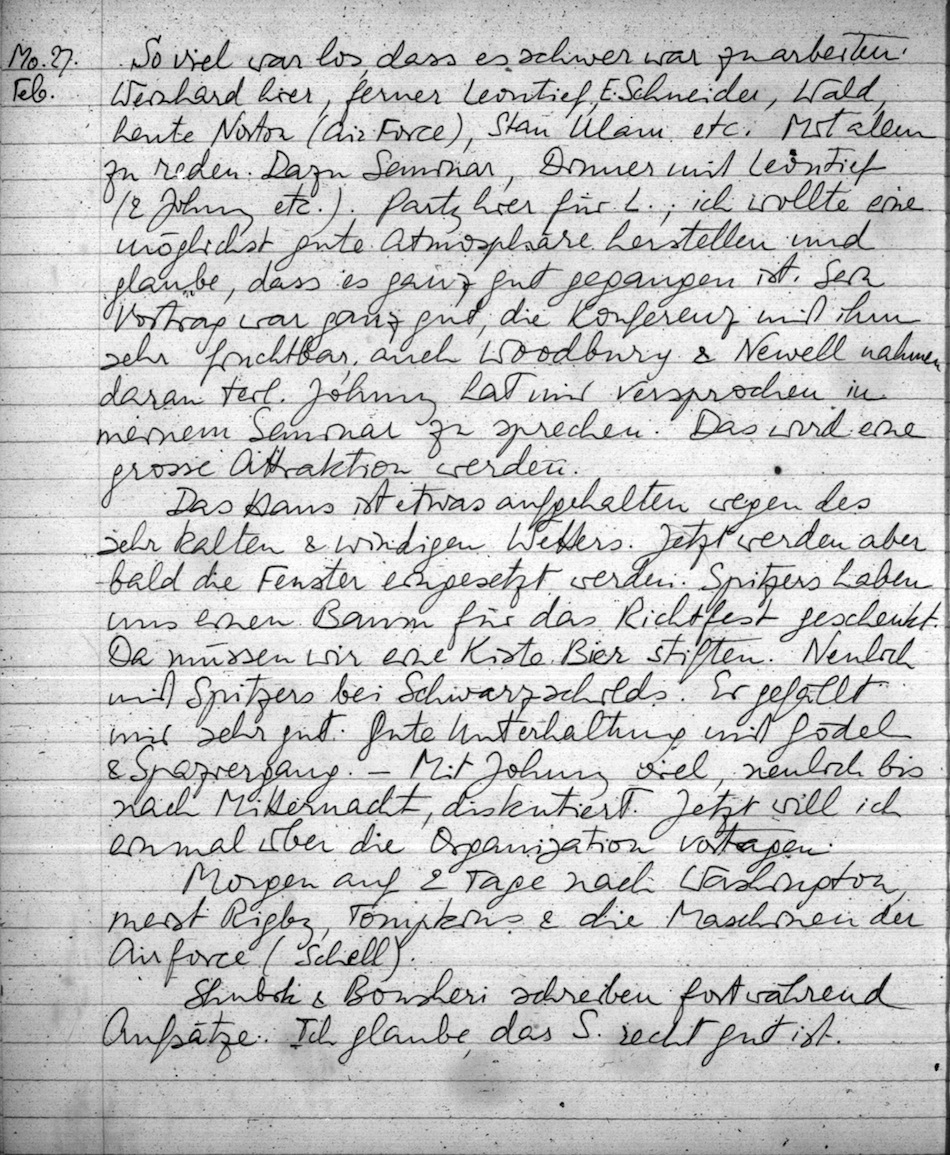 Mo. 27. So viel war los, dass es schwer war zu arbeiten.
Feb. hier, ferner Leontief, E. Schneider, Wald,
heute Norton (Air Force), Stan Ulam etc. Mit allen
zu reden. Dazu Seminar, Dinner mit Leontief
(& Johnny etc.). Party hier für L.; ich wollte eine
möglichst gute Atmosphäre herstellen und
glaube, dass es ganz gut gegangen ist. Sein
Vortrag war ganz gut, die Konferenz mit ihm
sehr fruchtbar, auch Woodbury & Newell nahmen
daran teil. Johnny hat mir versprochen in
meinem Seminar zu sprechen. Das wird eine
grosse Attraktion werden.
Das Haus ist etwas aufgehalten wegen des
sehr kalten & windigen Wetters. Jetzt werden aber
bald die Fenster eingesetzt werden. Spitzers haben
uns einen Baum für das Richtfest geschenkt.
Da müssen wir eine Kiste Bier stiften. Neulich
mit Spitzers bei Schwarzschilds. Er gefällt
mir sehr gut. Gute Unterhaltung mit Gödel
& Spaziergang. – Mit Johnny viel, neulich bis
nach Mitternacht, diskutiert. Jetzt will ich
einmal über die Organization vortragen.
Morgen auf 2 Tage nach Washington,
meist Rigby, Tompkins & die Maschinen der
Airforce (Schell).
Shubik & schreiben fortwährend
Aufsätze. Ich glaube, das S. recht gut ist.